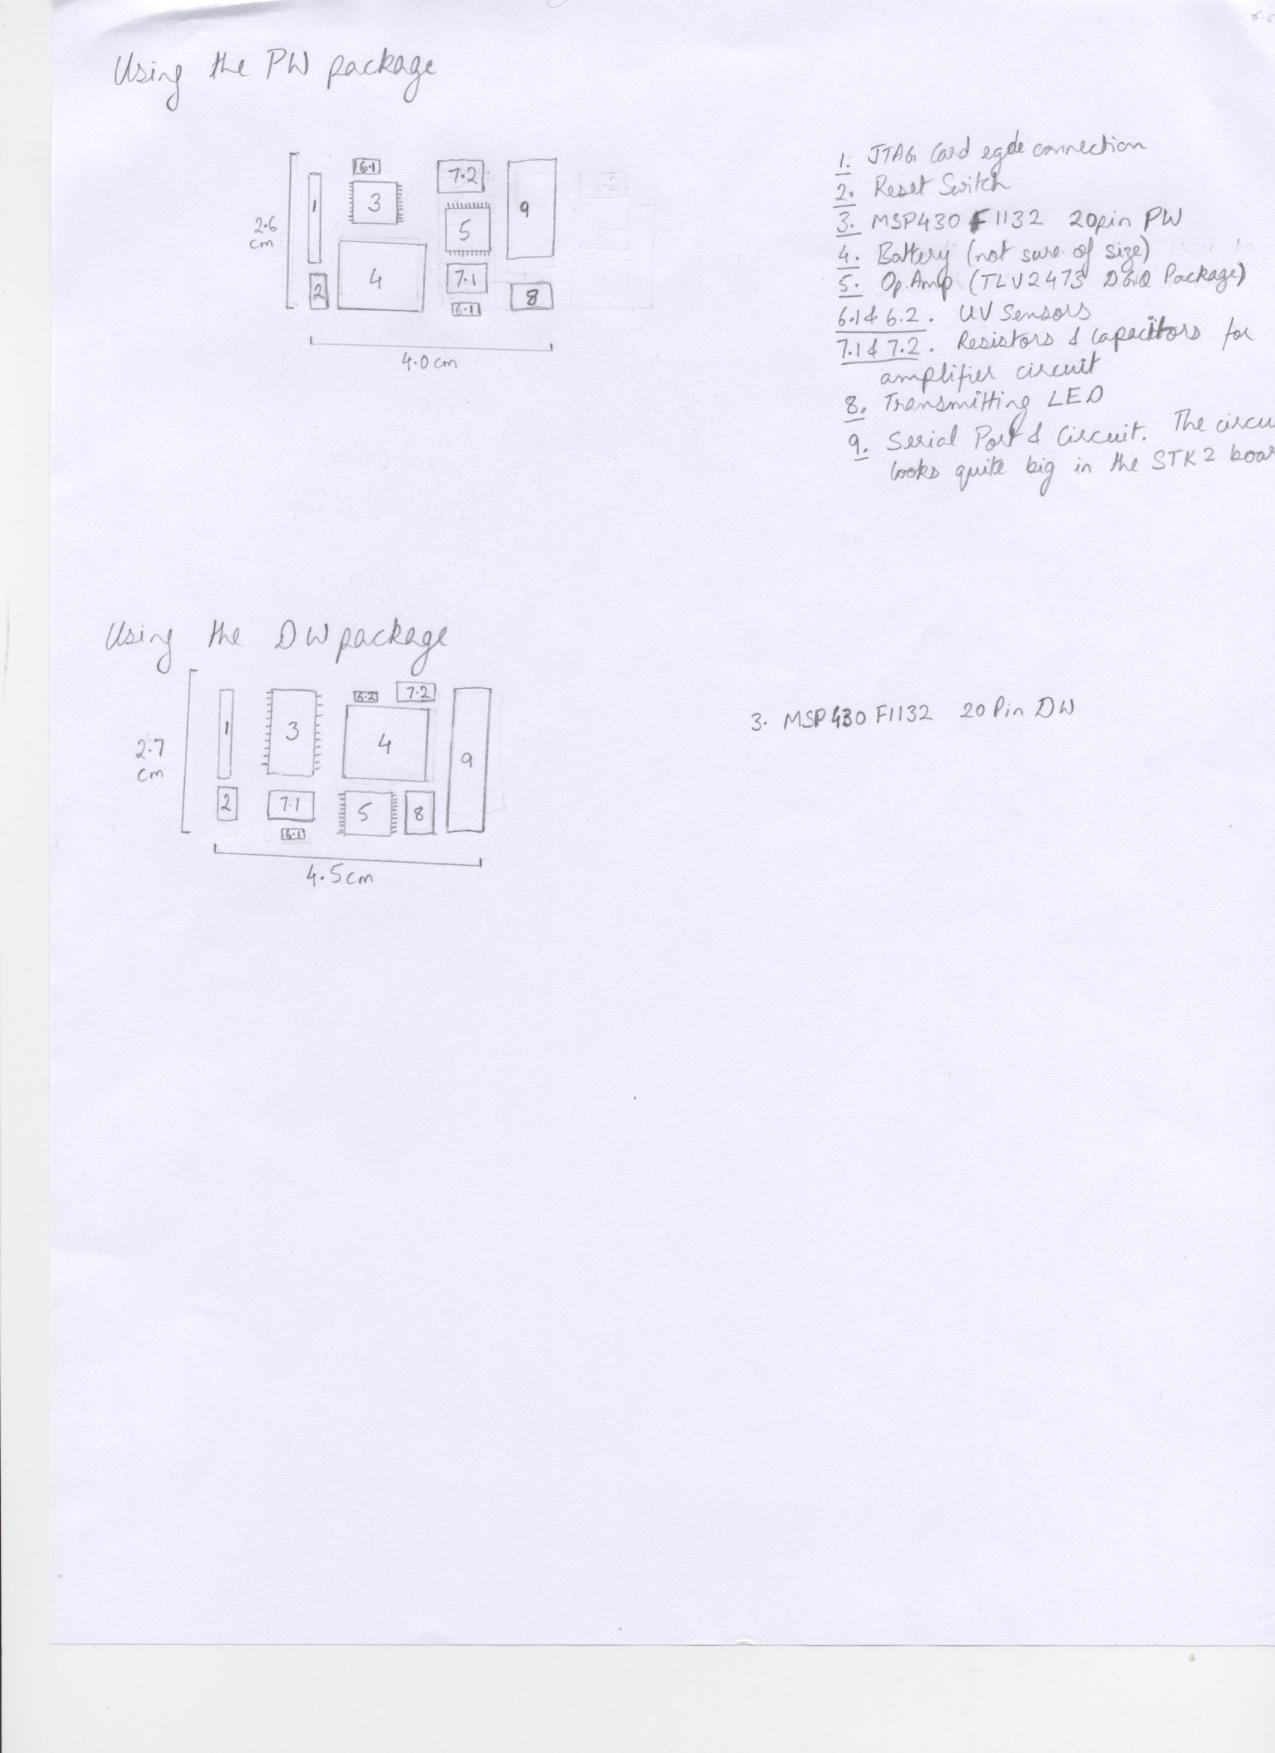 Using the PW package
6.1
7.2
1
3
9
5
2.6
cm
4
7.1
2
8
6.1
4.0cm
1. JTAG Card egde connection
2. Reset Switch
3. MSP430 F1132 20pin PW
4. Battery (not sure of size)
5. Op Amp (TLV2473 DGQ Package)
6.1 & 6.2. UV Sensors
7.1 & 7.2. Resistors & Capacitors for
amplifier circuit
8. Transmitting LED
9. Serial Port & Circuit. The circu
looks quite big in the STK2 boar
Using the DW package
6.2
7.2
1
3
4
9
2.7
cm
2
7.1
5
8
6.1
4.5cm
3. MSP430 F1132 20 Pin DW